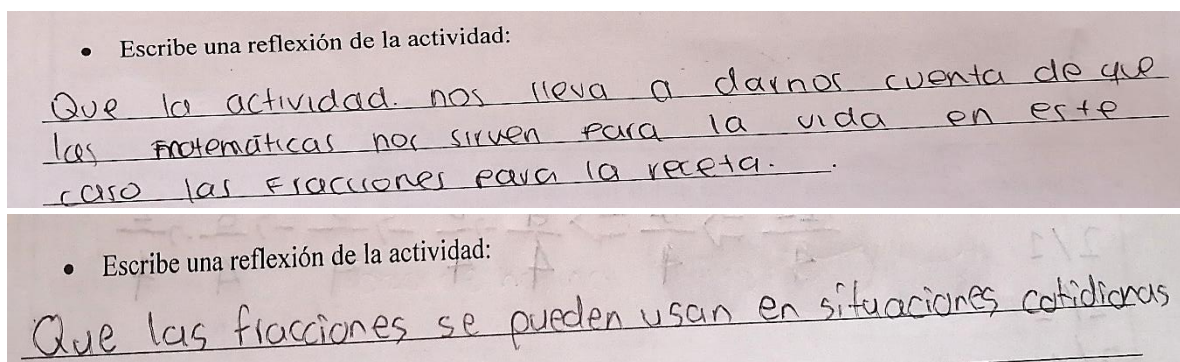 • Escribe una reflexión de la actividad:
Que la actividad. nos lleva a darnos cuenta de que
las matemáticas nos sirven para la vida en este
caso las fracciones para la receta.
• Escribe una reflexión de la actividad:
Que las fracciones se pueden usan en situaciones cotidianas